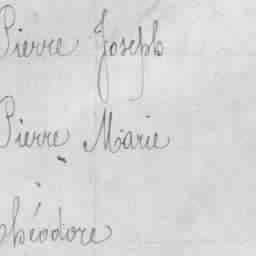 Pierre Joseph
Pierre Marie
Théodore